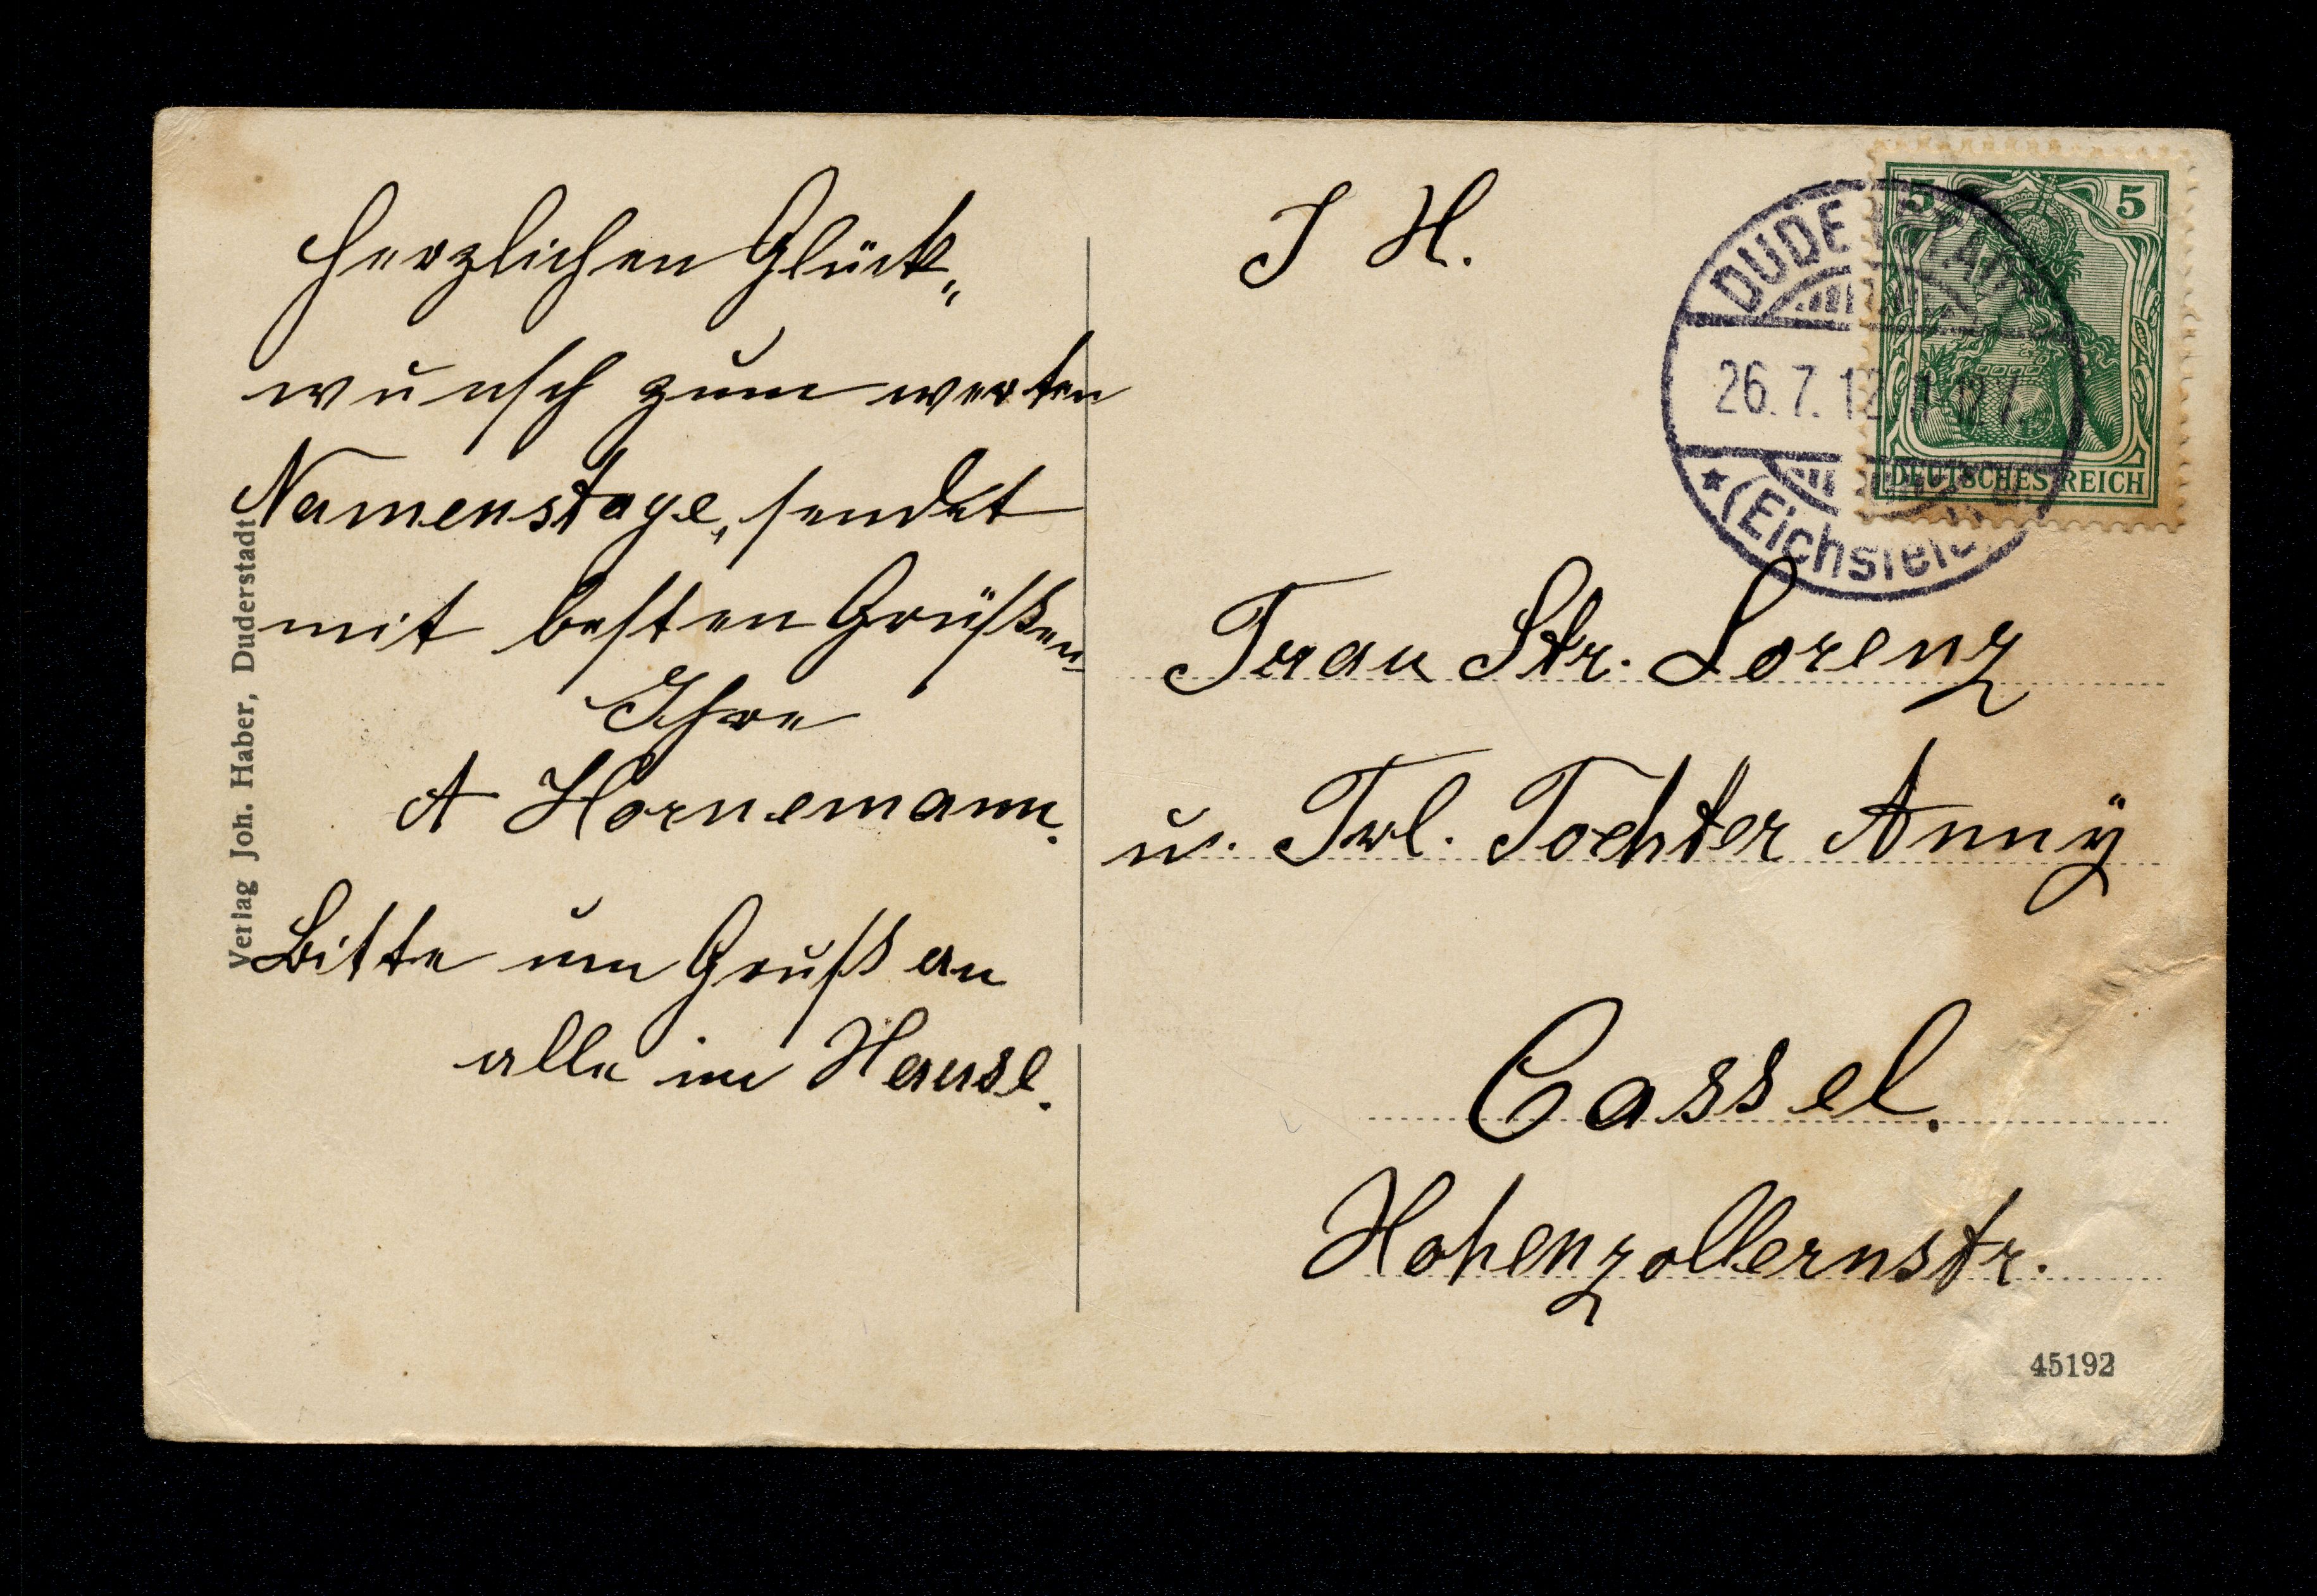 Herzlichen Glück„
wunsch zum werten
Namenstage, sendet
mit besten Grüßen
Ihre
A Hornemann.
Bitte um Gruß an
alle im Hause.
Verlag Joh. Haber, Duderstadt
J H.
5 5
DEUTSCHES REICH
DUDERSTADT
26.7.12
* (Eichsfeld)
Frau Str. Lorenz
u. Frl. Tochter Annÿ
Cassel.
Hohenzollernstr.
45192